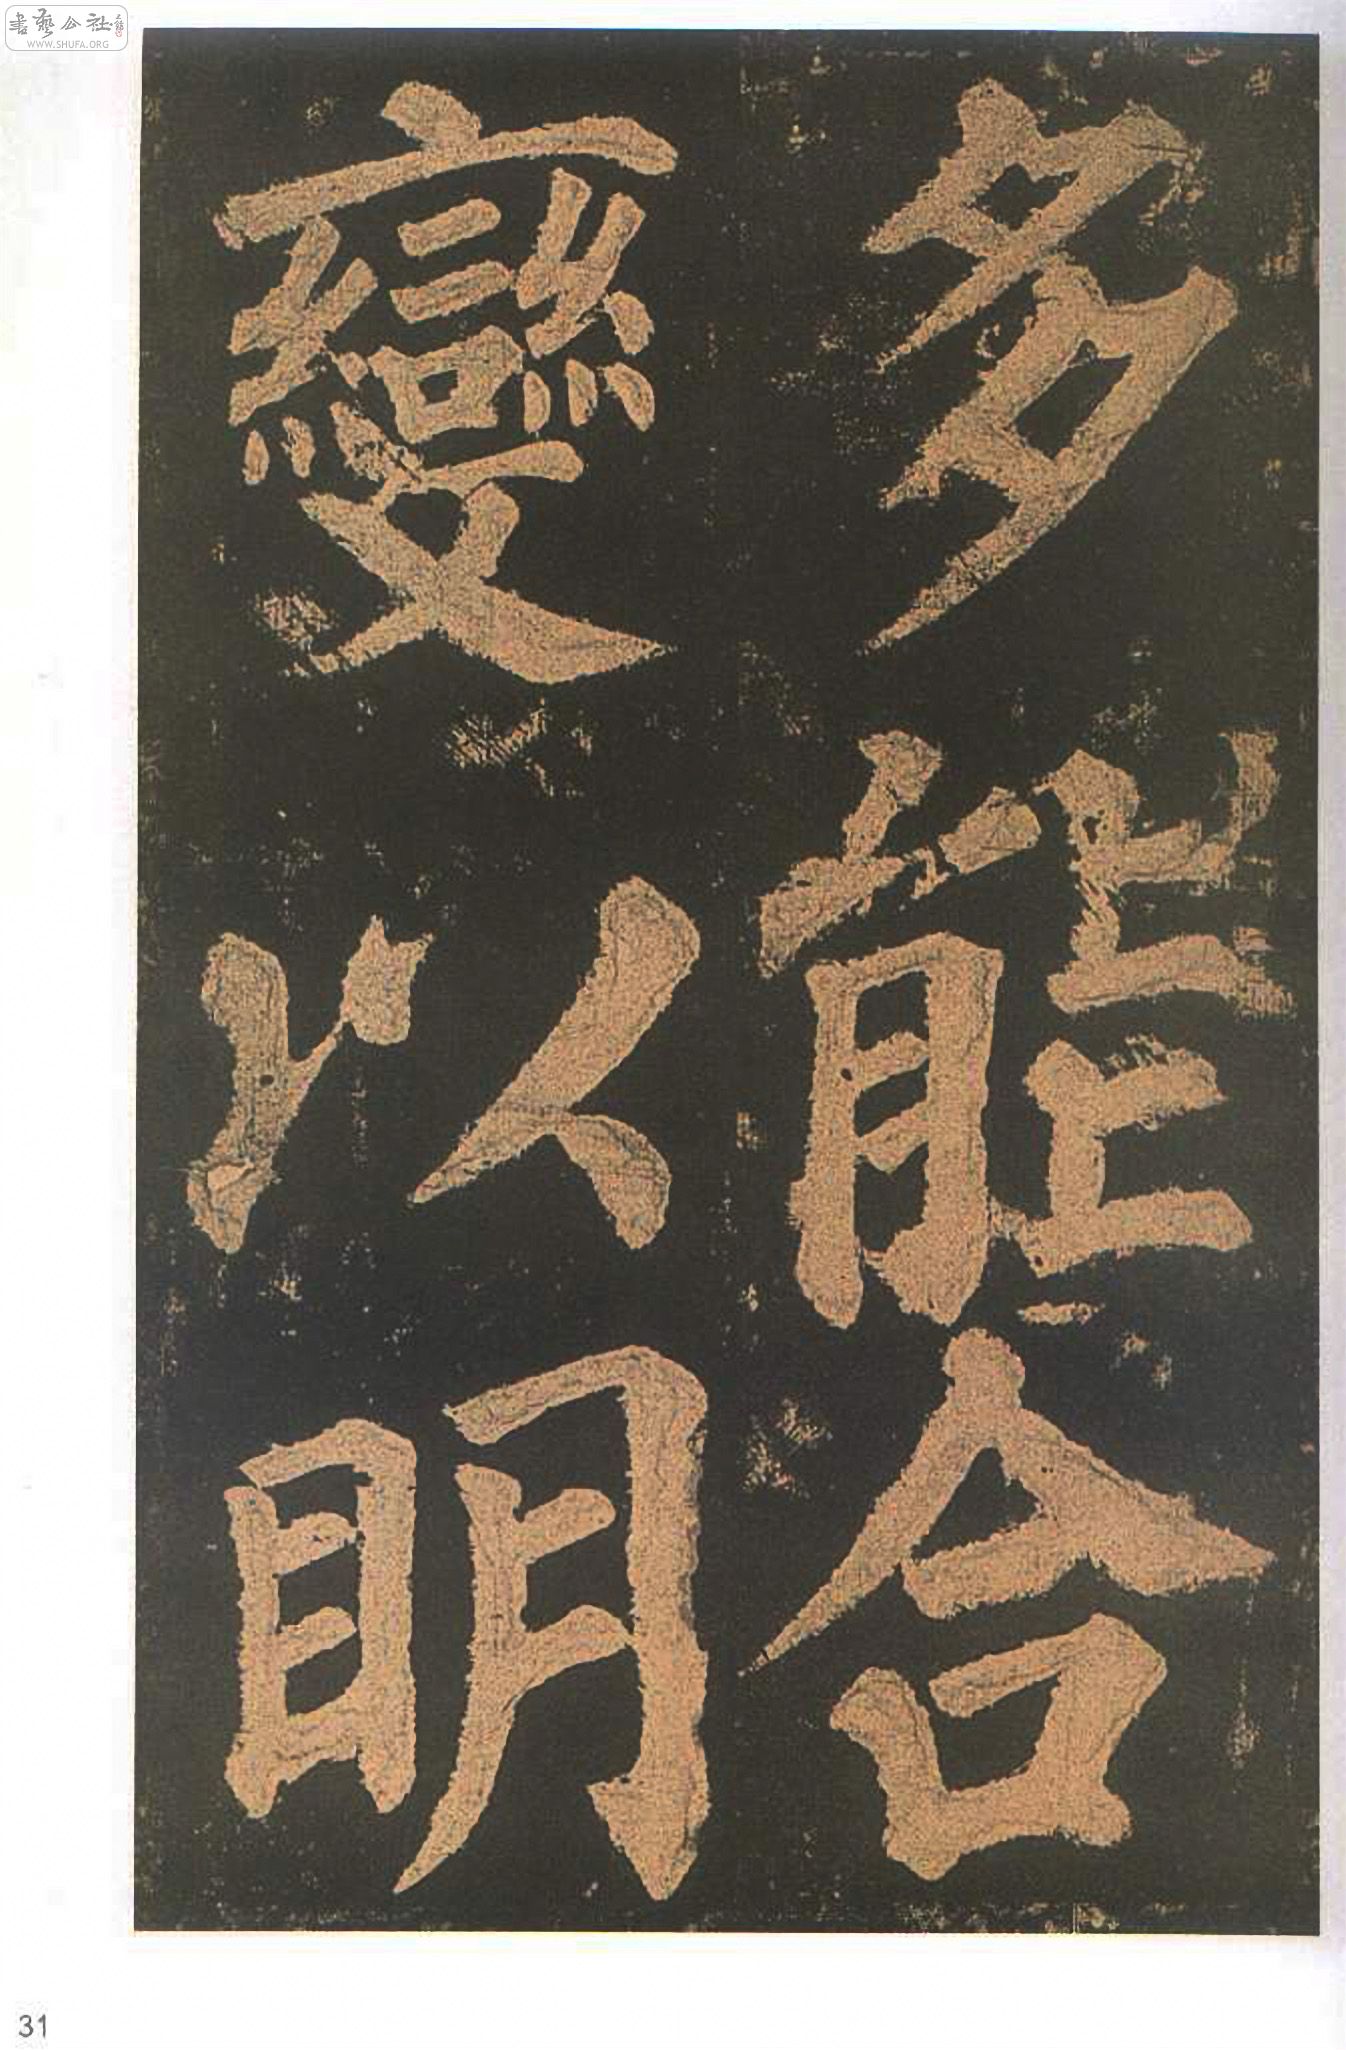 多能合
變以明
書藝公社
WWW.SHUFA.ORG
31